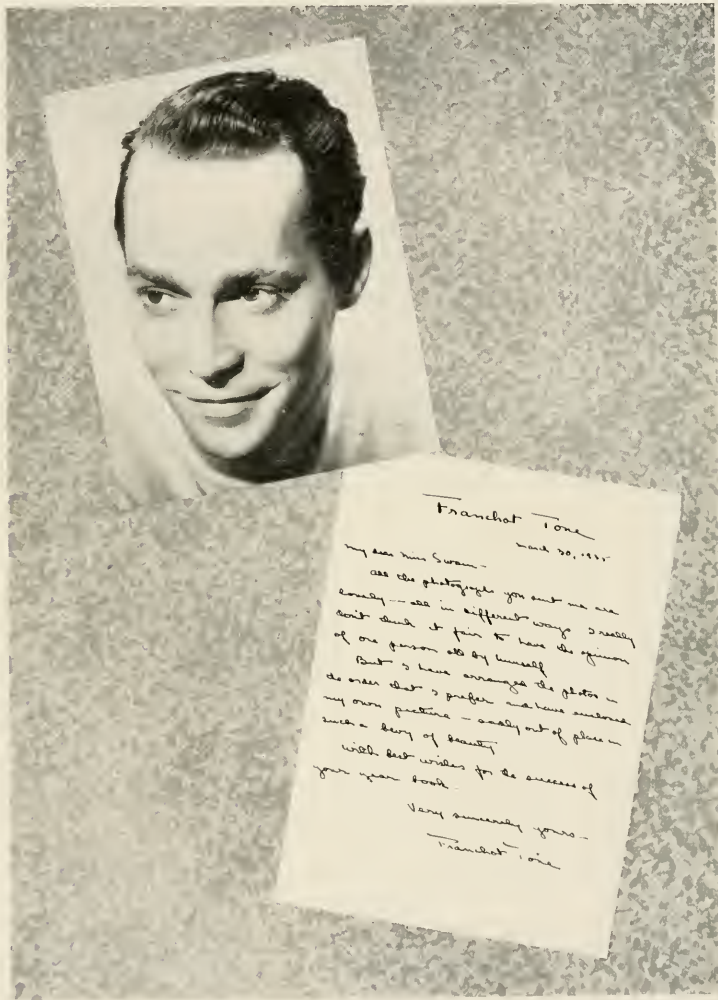 Franchot Tone
March 30, 1935
My dear Miss Swann-
All the photographs you sent me are
lovely — all in different ways. I really
don't think it fair to have the opinion
of one person all by himself.
But I have arranged the photos in
the order that I prefer and have enclosed
my own picture — sadly out of place in
such a bevy of beauty.
With best wishes for the success of
your year book.
Very sincerely yours-
Franchot Tone